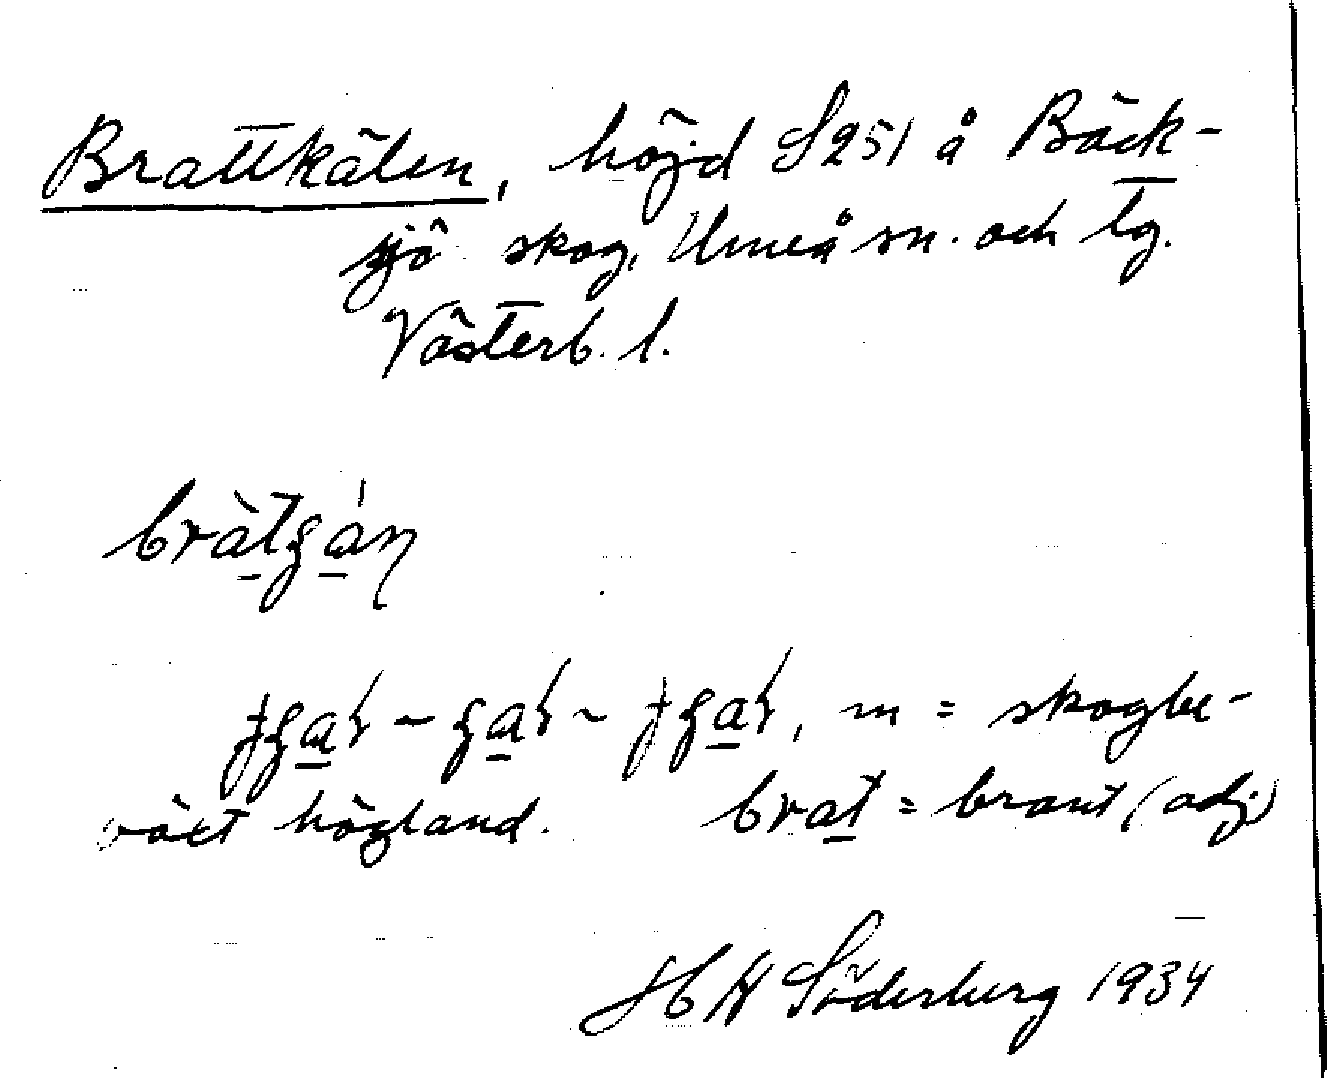 Brattkälen, höjd S251 å Bäck-
sjö skog, Umeå sn. och tg.
Västerb. l.
m = skogbe-
växt högland. brat = brant (adj)
H H Söderberg 1934